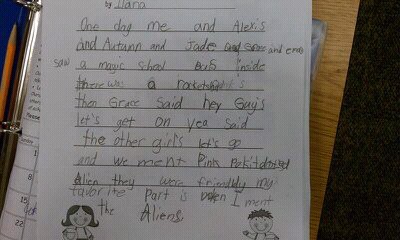 by Ilana
One dag me and Alexis
and Autunn and Jade and Grace and emma
saw a magic school Bus inside
there was a rocketship it's
then Grace said hey Guy's
let's get on yea said
the other girl's let's go
and we ment Pink Polkitdotted
Alien they were friendly my
favorite Part is when I ment
the Aliens,